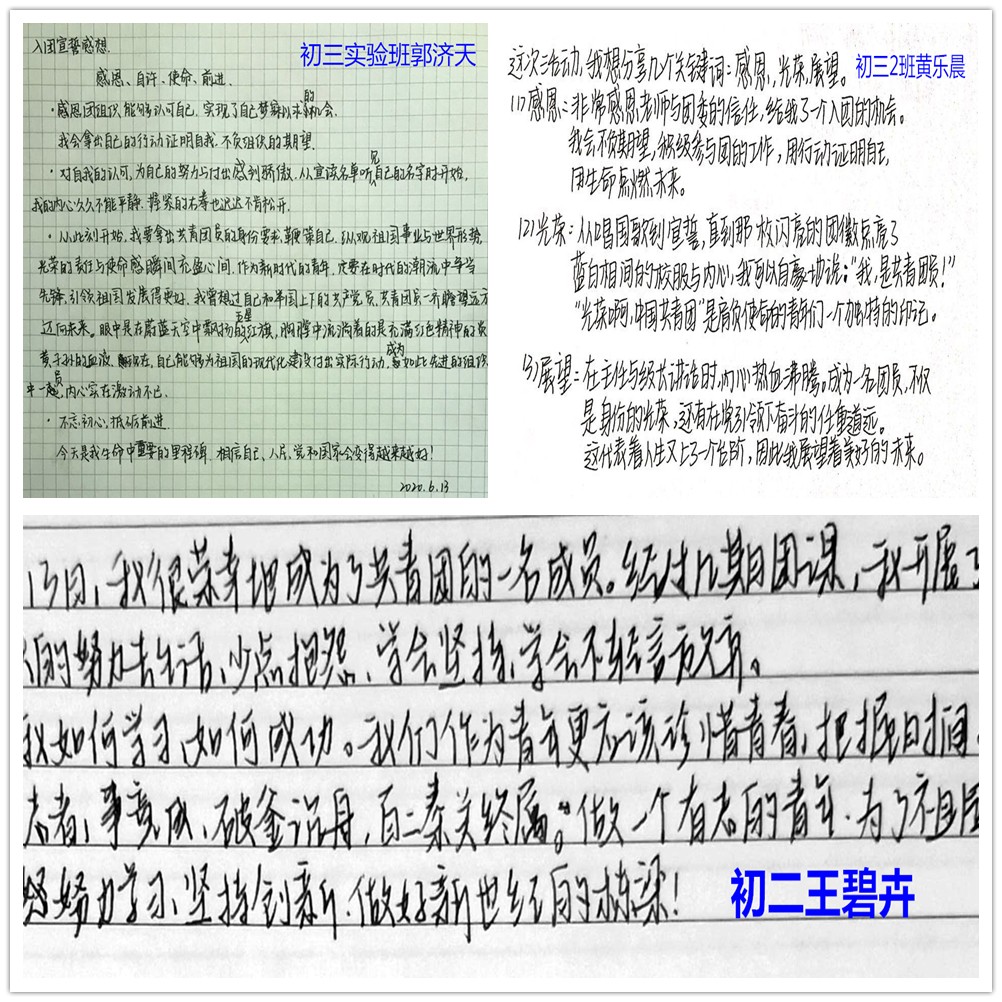 入团宣誓感想.
初三实验班郭济天
感恩、自许、使命、前进.
·感恩团组织,能够认可自己,实现了自己梦寐以求的机会.
我会拿出自己的行动证明自我.不负组织的期望.
·对自我的认可,为自己的努力与付出感到骄傲.从宣读名单听见自己的名字时开始,
我的内心久久不能平静.握紧的右拳也迟迟不肯松开.
·从此刻开始,我要拿出共青团员的身份要求,鞭策自己.纵观祖国事业与世界形势,
光荣的责任与使命感瞬间充盈心间.作为新时代的青年,定要在时代的潮流中争当
先锋,引领祖国发展得更好.我曾想过自己和举国上下的共产党员、共青团员一齐瞻望远方
迈向未来.眼中是在蔚蓝天空中飘扬的五星红旗,胸膛中流淌着的是充满红色精神的炎
黄子孙的血液.现在,自己能够为祖国的现代化建设付出实际行动.成为如此先进的组织
中一员,内心实在激动不已.
·不忘初心,砥砺前进.
今天是我生命中重要的里程碑.相信自己、人民、党和国家会变得越来越好!
2020.6.13
这次活动,我想分享几个关键词:感恩,光荣,展望。
初三2班黄乐晨
(1)感恩:非常感恩老师与团委的信任,给我了一个入团的机会。
我会不负期望,积极参与团的工作,用行动证明自己,
用生命点燃未来。
(2)光荣:从唱国歌到宣誓,直到那枚闪亮的团徽点亮了
蓝白相间的校服与内心,我可以自豪地说:“我,是共青团员!”
“光荣啊,中国共青团”是肩负使命的青年们一个独特的印记。
(3)展望:在主任与级长讲话时,内心热血沸腾。成为一名团员,不仅
是身份的光荣,还有在党引领下奋斗的任重道远。
这代表着人生又上了一个台阶,因此我展望着美好的未来。
13日,我很荣幸地成为了共青团的一名成员。经过几期团课,我开展
的努力去生活、少点抱怨、学会坚持、学会不轻言放弃。
我如何学习、如何成功。我们作为青年更应该珍惜青春,把握时间.
志者,事竟成,破釜沉舟,百二秦关终属。做一个有志的青年.为了祖国
努力学习、坚持创新、做好新世纪的栋梁!
初二王碧卉